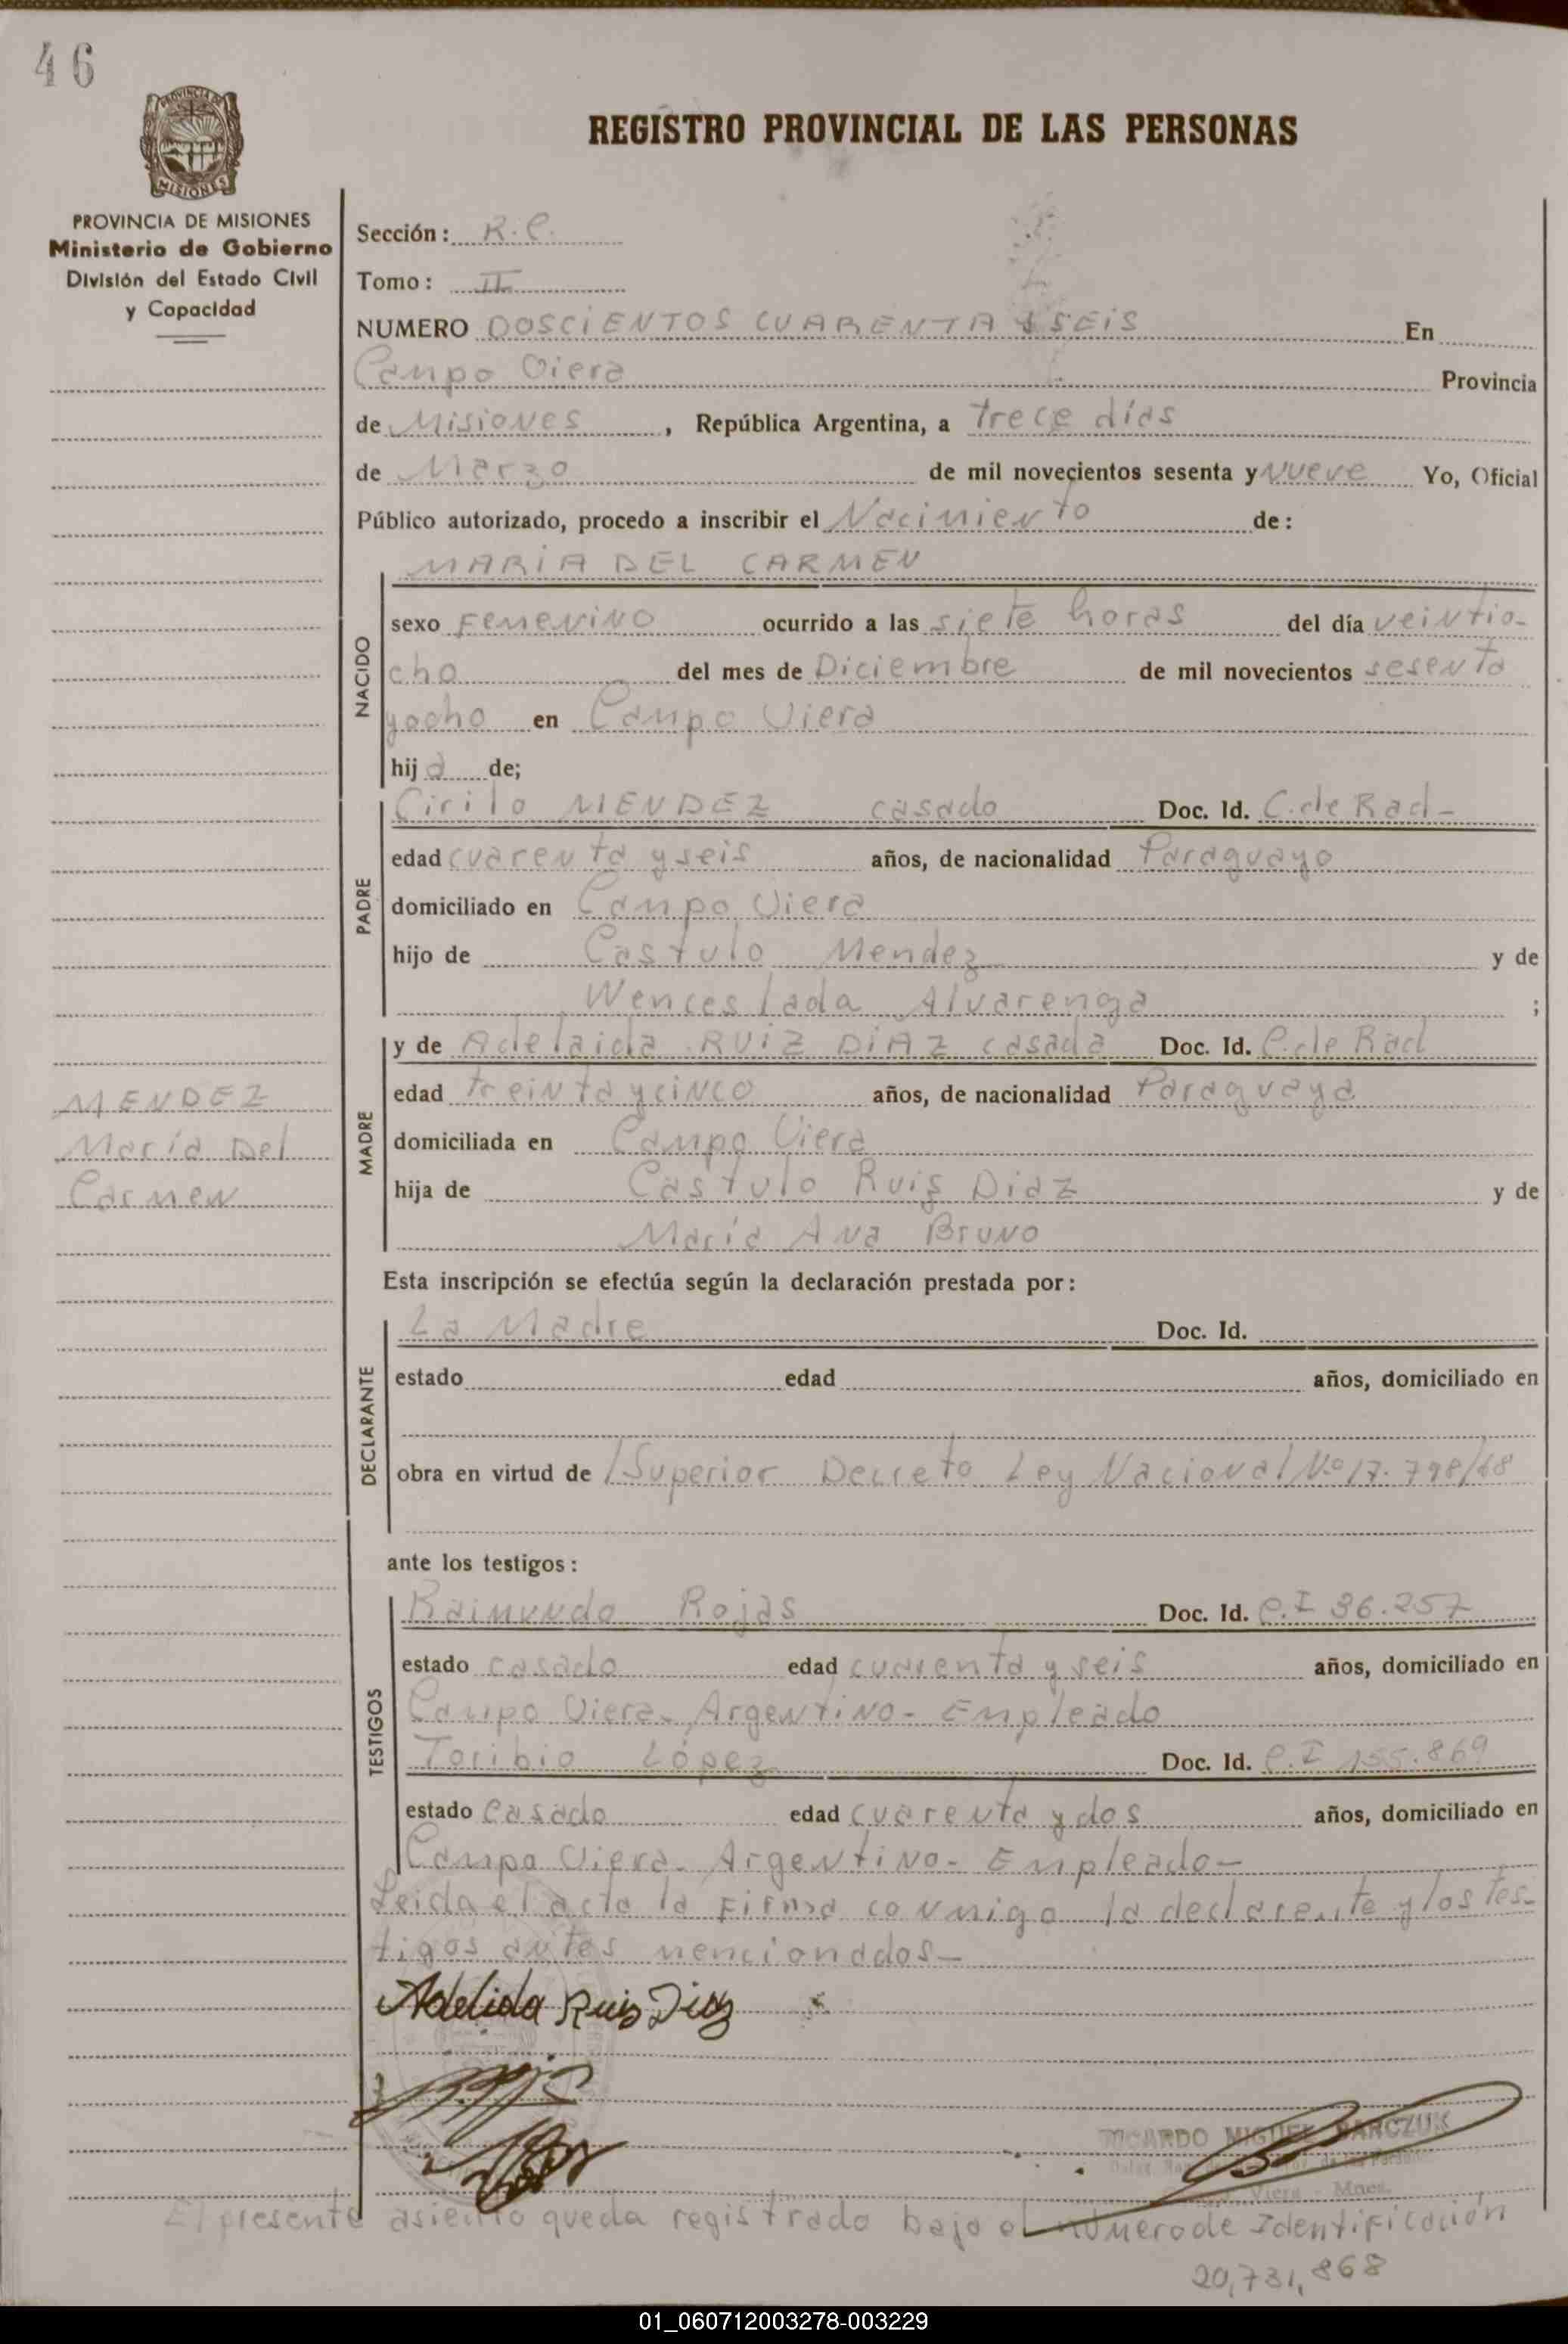 46
PROVINCIA DE MISIONES
PROVINCIA DE MISIONES
Ministerio de Gobierno
División del Estado Civil
y Capacidad
REGISTRO PROVINCIAL DE LAS PERSONAS
Sección: R.C.
Tomo: II
NUMERO DOSCIENTOS CUARENTA Y SEIS En
Campo Viera Provincia
de Misiones, República Argentina, a trece días
de Marzo de mil novecientos sesenta y nueve Yo, Oficial
Público autorizado, procedo a inscribir el Nacimiento de:
NACIDO
MARIA DEL CARMEN
sexo Femenino ocurrido a las siete horas del día veintio-
cho del mes de Diciembre de mil novecientos sesenta
yocho en Campo Viera
hija de;
PADRE
Cirilo MENDEZ casado Doc. Id. C.de Rad-
edad cuarenta y seis años, de nacionalidad Paraguayo
domiciliado en Campo Viera
hijo de Castulo Mendez y de
Wenceslada Alvarenga ;
MADRE
y de Adelaida RUIZ DIAZ casada Doc. Id. C.de Rad
edad treinta y cinco años, de nacionalidad Paraguaya
domiciliada en Campo Viera
hija de Castulo Ruiz Diaz y de
María Ana Bruno
MENDEZ
María Del
Carmen
Esta inscripción se efectúa según la declaración prestada por:
DECLARANTE
La Madre Doc. Id.
estado edad años, domiciliado en
obra en virtud de /Superior Decreto Ley Nacional Nº 17.798/68
ante los testigos:
TESTIGOS
Raimundo Rojas Doc. Id. C.I 36.257
estado casado edad cuarenta y seis años, domiciliado en
Campo Viera-Argentino-Empleado
Toribio López Doc. Id. C.I 155.869
estado Casado edad cuarenta y dos años, domiciliado en
Campo Viera-Argentino-Empleado-
Leida el acta la Firma conmigo la declarante y los tes-
tigos antes mencionados-
Adelida Ruis Diaz
RICARDO MIGUEL BARCZUK
Viera - Mnes.
El presente asiento queda registrado bajo el número de Identificación
20,731,868
01_060712003278-003229